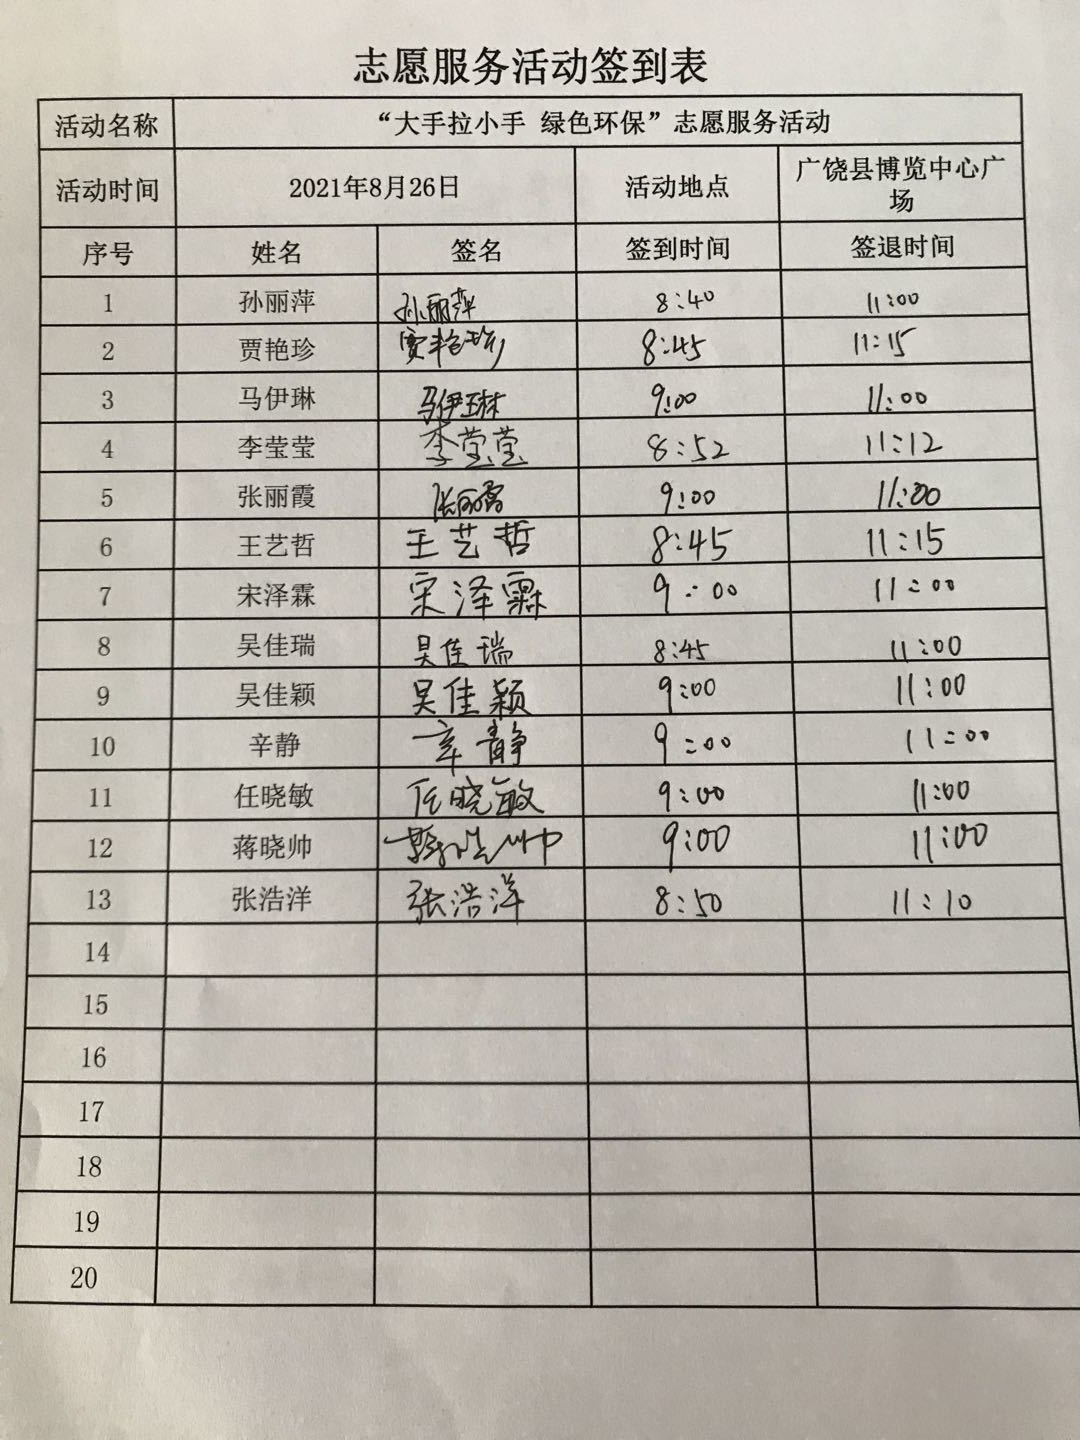 志愿服务活动签到表
活动名称 “大手拉小手 绿色环保”志愿服务活动
活动时间 2021年8月26日 活动地点 广饶县博览中心广
场
序号 姓名 签名 签到时间 签退时间
1 孙丽萍 孙丽萍 8:40 11:00
2 贾艳珍 贾艳珍 8:45 11:15
3 马伊琳 马伊琳 9:00 11:00
4 李莹莹 李莹莹 8:52 11:12
5 张丽霞 张丽霞 9:00 11:00
6 王艺哲 王艺哲 8:45 11:15
7 宋泽霖 宋泽霖 9:00 11:00
8 吴佳瑞 吴佳瑞 8:45 11:00
9 吴佳颖 吴佳颖 9:00 11:00
10 辛静 辛静 9:00 11:00
11 任晓敏 任晓敏 9:00 11:00
12 蒋晓帅 蒋晓帅 9:00 11:00
13 张浩洋 张浩洋 8:50 11:10
14
15
16
17
18
19
20